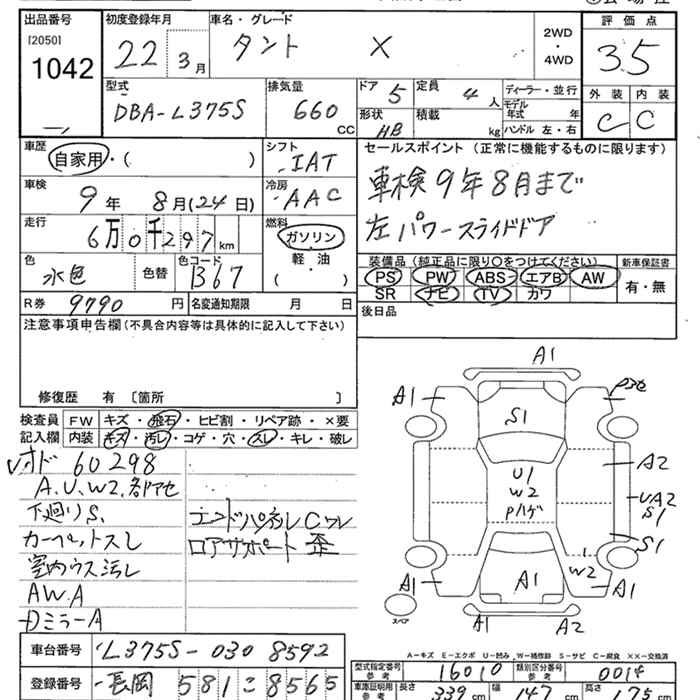 出品番号 初度登録年月 車名・グレード 2WD 評価点
[2050] 22年 3月 タント X ・
1042 4WD 3.5
型式 排気量 ドア 5 定員 4人 ディーラー・並行 外装 内装
DBA-L375S 660 CC 形状 HB 積載 kg モデル年式 年 C C
ハンドル 左・右
車歴 シフト セールスポイント(正常に機能するものに限ります)
自家用・( ) IAT
車検 冷房 車検9年8月まで
9年 8月(24日) AAC 左パワースライドドア
走行 燃料
6万0千297km ガソリン
色 色替 色コード 軽・油 装備品(純正品に限り○をつけてください) 新車保証書
水色 B67 ( ) PS PW ABS エアB AW 有・無
R券 9790円 名変通知期限 月 日 SR ナビ TV カワ
注意事項申告欄(不具合内容等は具体的に記入して下さい) 後日品
修復歴 有 〔箇所 〕
検査員 FW キズ・飛石・ヒビ割・リペア跡・×要
記入欄 内装 キズ・汚レ・コゲ・穴・スレ・キレ・破レ
オド 60298
A.U.W2.各部アセ
下廻りS. エンドパネルCワレ
カーペットスレ ロアサポート 歪
室内ウス汚レ
AW.A
DミラーA
A1
A1
S1
A2
U1
W2
Pハゲ
UA2
S1
S1
W2
A1
A1
A1
スペア
A1 A2
A-キズ E-エクボ U-凹み W-補修跡 S-サビ C-腐食 ××-交換済
車台番号 L375S-0308592
型式指定番号 参考 16010 類別区分番号 参考 0014
登録番号 長岡 581 こ 8565
車庫証明用 参考 長さ 339cm 幅 147cm 高さ 175cm